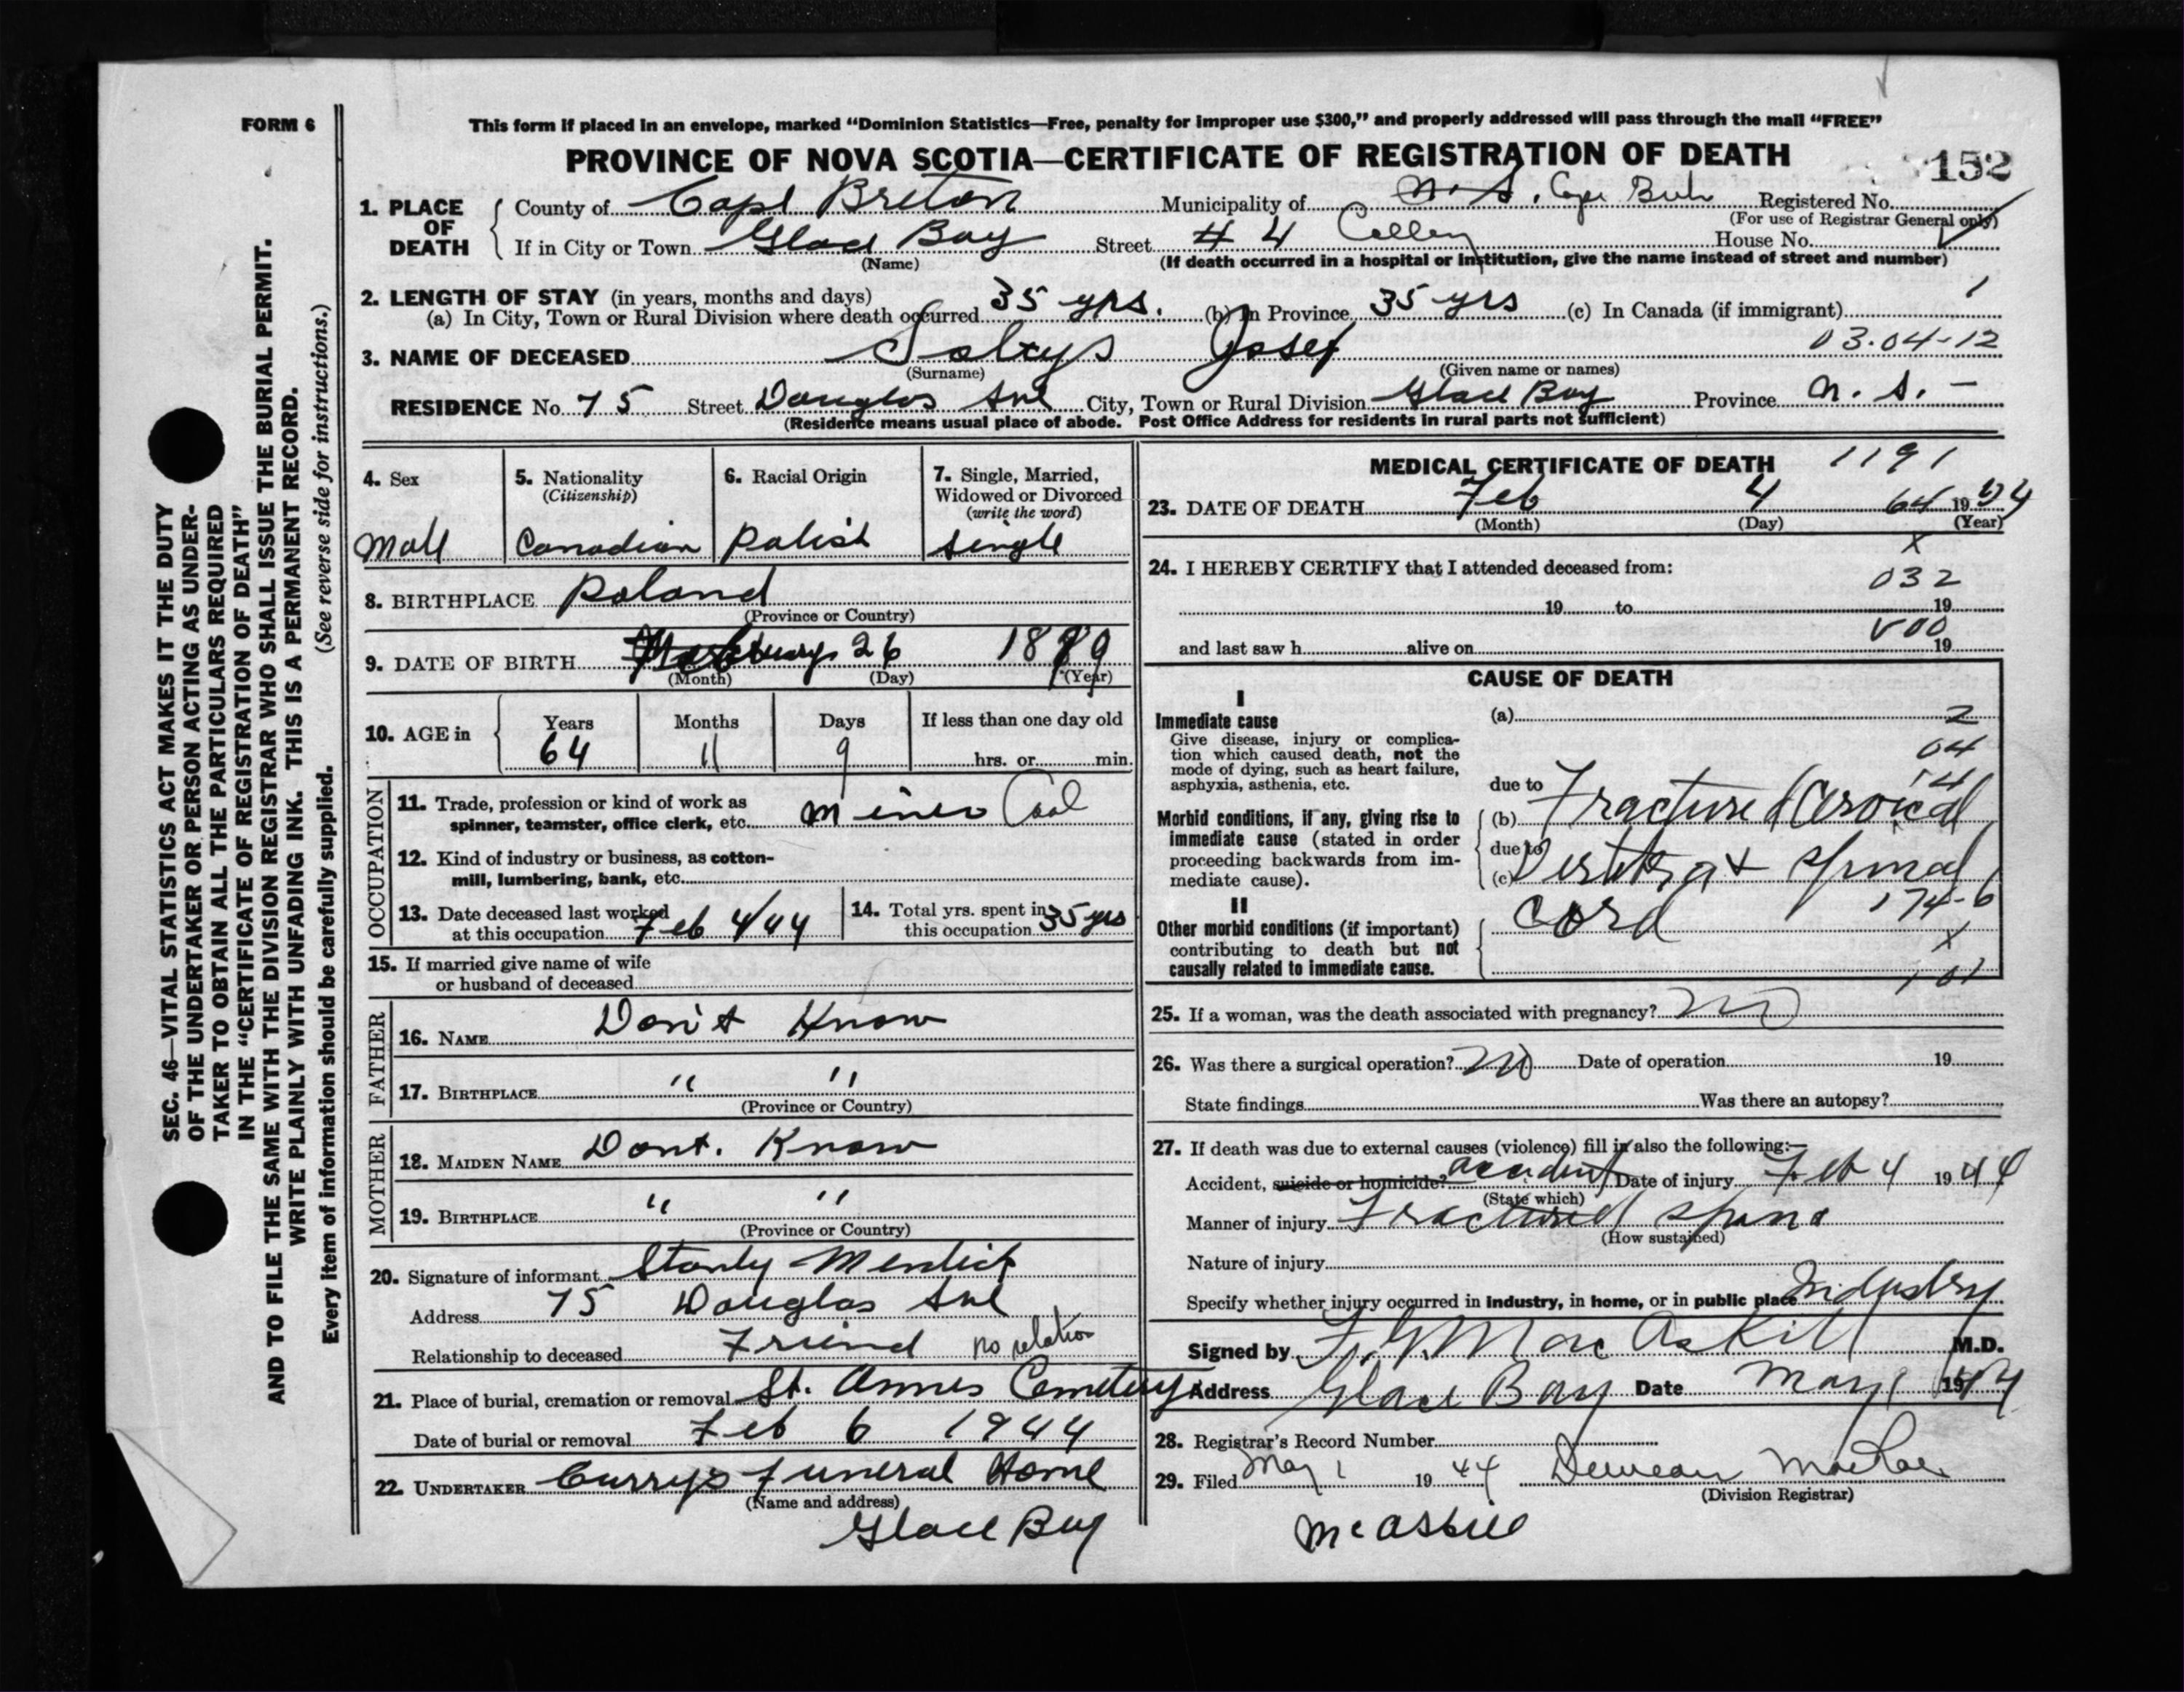 FORM 6
This form if placed in an envelope, marked “Dominion Statistics—Free, penalty for improper use $300,” and properly addressed will pass through the mail “FREE”
PROVINCE OF NOVA SCOTIA—CERTIFICATE OF REGISTRATION OF DEATH
152
1. PLACE OF DEATH
County of Cape Breton Municipality of N. S. Cape Registered No.
(For use of Registrar General only)
If in City or Town Glace Bay Street # 4 House No.
(Name) (If death occurred in a hospital or institution, give the name instead of street and number)
2. LENGTH OF STAY (in years, months and days)
(a) In City, Town or Rural Division where death occurred 35 yrs. (b) In Province 35 yrs (c) In Canada (if immigrant)
3. NAME OF DECEASED Soltys Josef 03.04-12
(Surname) (Given name or names)
RESIDENCE No. 75 Street Douglas Ave City, Town or Rural Division Glace Bay Province N. S. -
(Residence means usual place of abode. Post Office Address for residents in rural parts not sufficient)
4. Sex
Male
5. Nationality
(Citizenship)
Canadian
6. Racial Origin
Polish
7. Single, Married,
Widowed or Divorced
(write the word)
Single
8. BIRTHPLACE Poland
(Province or Country)
9. DATE OF BIRTH 26
(Month) (Day) (Year)
10. AGE in
Years Months Days If less than one day old
64 11 9 hrs. or min.
OCCUPATION
11. Trade, profession or kind of work as
spinner, teamster, office clerk, etc. Miner Coal
12. Kind of industry or business, as cotton-
mill, lumbering, bank, etc.
13. Date deceased last worked
at this occupation Feb 4/44
14. Total yrs. spent in
this occupation 35 yrs
15. If married give name of wife
or husband of deceased
FATHER
16. NAME Don't Know
17. BIRTHPLACE " "
(Province or Country)
MOTHER
18. MAIDEN NAME Dont. Know
19. BIRTHPLACE " "
(Province or Country)
20. Signature of informant Stanly
Address 75 Douglas Ave
Relationship to deceased Friend no relation
21. Place of burial, cremation or removal St. Annes Cemetery
Date of burial or removal Feb 6 1944
22. UNDERTAKER Currys Funeral Home
(Name and address)
Glace Bay
MEDICAL CERTIFICATE OF DEATH 1191
23. DATE OF DEATH Feb 4 64 1944
(Month) (Day) (Year)
x
24. I HEREBY CERTIFY that I attended deceased from:
032
19 to 19
and last saw h alive on 19
CAUSE OF DEATH
I
Immediate cause
Give disease, injury or complica-
tion which caused death, not the
mode of dying, such as heart failure,
asphyxia, asthenia, etc.
(a) 2
04
14
due to
Morbid conditions, if any, giving rise to
immediate cause (stated in order
proceeding backwards from im-
mediate cause).
(b) Fracture of Cervical
due to
(c) Vertebra & Spinal
Cord
174-6
x
101
II
Other morbid conditions (if important)
contributing to death but not
causally related to immediate cause.
25. If a woman, was the death associated with pregnancy? no
26. Was there a surgical operation? no Date of operation 19
State findings Was there an autopsy?
27. If death was due to external causes (violence) fill in also the following:—
Accident, suicide or homicide? accident Date of injury Feb 4 1944
(State which)
Manner of injury Fractured spine
(How sustained)
Nature of injury
Specify whether injury occurred in industry, in home, or in public place Industry
Signed by F. G. Mac Askill M.D.
Address Glace Bay Date May 1 1944
28. Registrar's Record Number
29. Filed May 1 19 44 Duncan MacRae
(Division Registrar)
McAskill
SEC. 46—VITAL STATISTICS ACT MAKES IT THE DUTY
OF THE UNDERTAKER OR PERSON ACTING AS UNDER-
TAKER TO OBTAIN ALL THE PARTICULARS REQUIRED
IN THE “CERTIFICATE OF REGISTRATION OF DEATH”
AND TO FILE THE SAME WITH THE DIVISION REGISTRAR WHO SHALL ISSUE THE BURIAL PERMIT.
WRITE PLAINLY WITH UNFADING INK. THIS IS A PERMANENT RECORD.
Every item of information should be carefully supplied. (See reverse side for instructions.)